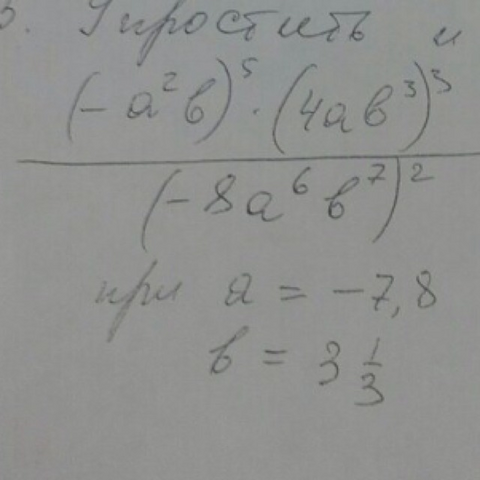 3. Упростить и
(-a²b)⁵ · (4ab³)³
(-8a⁶b⁷)²
при a = -7,8
b = 3 1/3